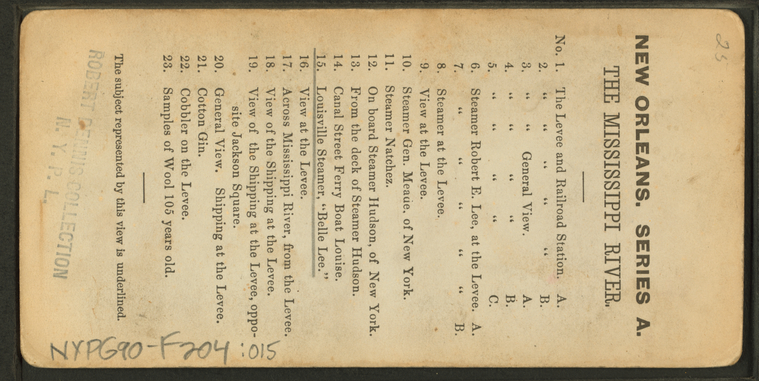 25
NEW ORLEANS. SERIES A.
THE MISSISSIPPI RIVER.
No. 1. The Levee and Railroad Station. A.
2. " " " " " B.
3. " " General View. A.
4. " " " " B.
5. " " " " C.
6. Steamer Robert E. Lee, at the Levee. A.
7. " " " " B.
8. Steamer at the Levee.
9. View at the Levee.
10. Steamer Gen. Meade, of New York.
11. Steamer Natchez.
12. On board Steamer Hudson, of New York.
13. From the deck of Steamer Hudson.
14. Canal Street Ferry Boat Louise.
15. Louisville Steamer, "Belle Lee."
16. View at the Levee.
17. Across Mississippi River, from the Levee.
18. View of the Shipping at the Levee.
19. View of the Shipping at the Levee, oppo-
site Jackson Square.
20. General View. Shipping at the Levee.
21. Cotton Gin.
22. Cobbler on the Levee.
23. Samples of Wool 105 years old.
The subject represented by this view is underlined.
ROBERT DENNIS COLLECTION
N. Y. P. L.
NYPG90-F204:015